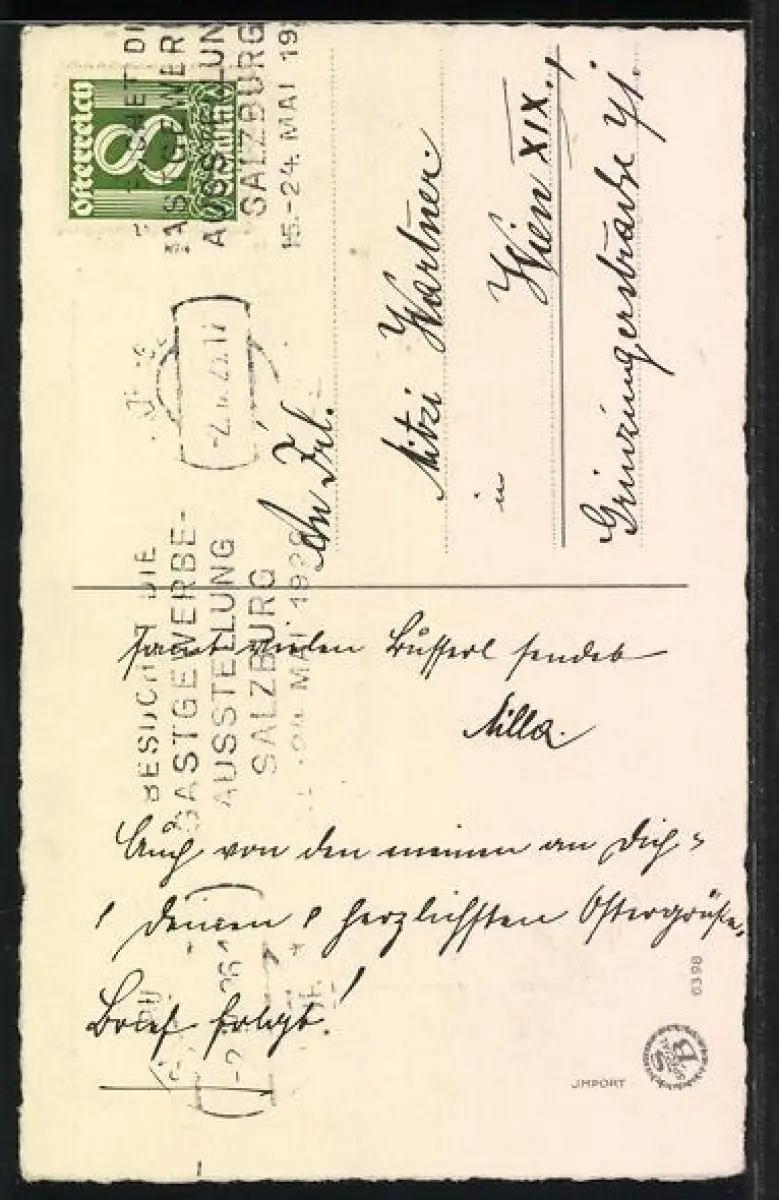 Österreich
8
BESUCHET DIE
GASTGEWERBE-
AUSSTELLUNG
SALZBURG
15.-24. MAI 1926
An Frl.
Mitzi Wartner.
in
Wien XIX.,
Grinzingerstraße 41.
BESUCHET DIE
GASTGEWERBE-
AUSSTELLUNG
SALZBURG
24. MAI 1926
samt vielen Bußerl sendet
Milla.
Auch von den meinen an Dich
deinen herzlichsten Ostergrüße.
Brief folgt!
6398
JMPORT